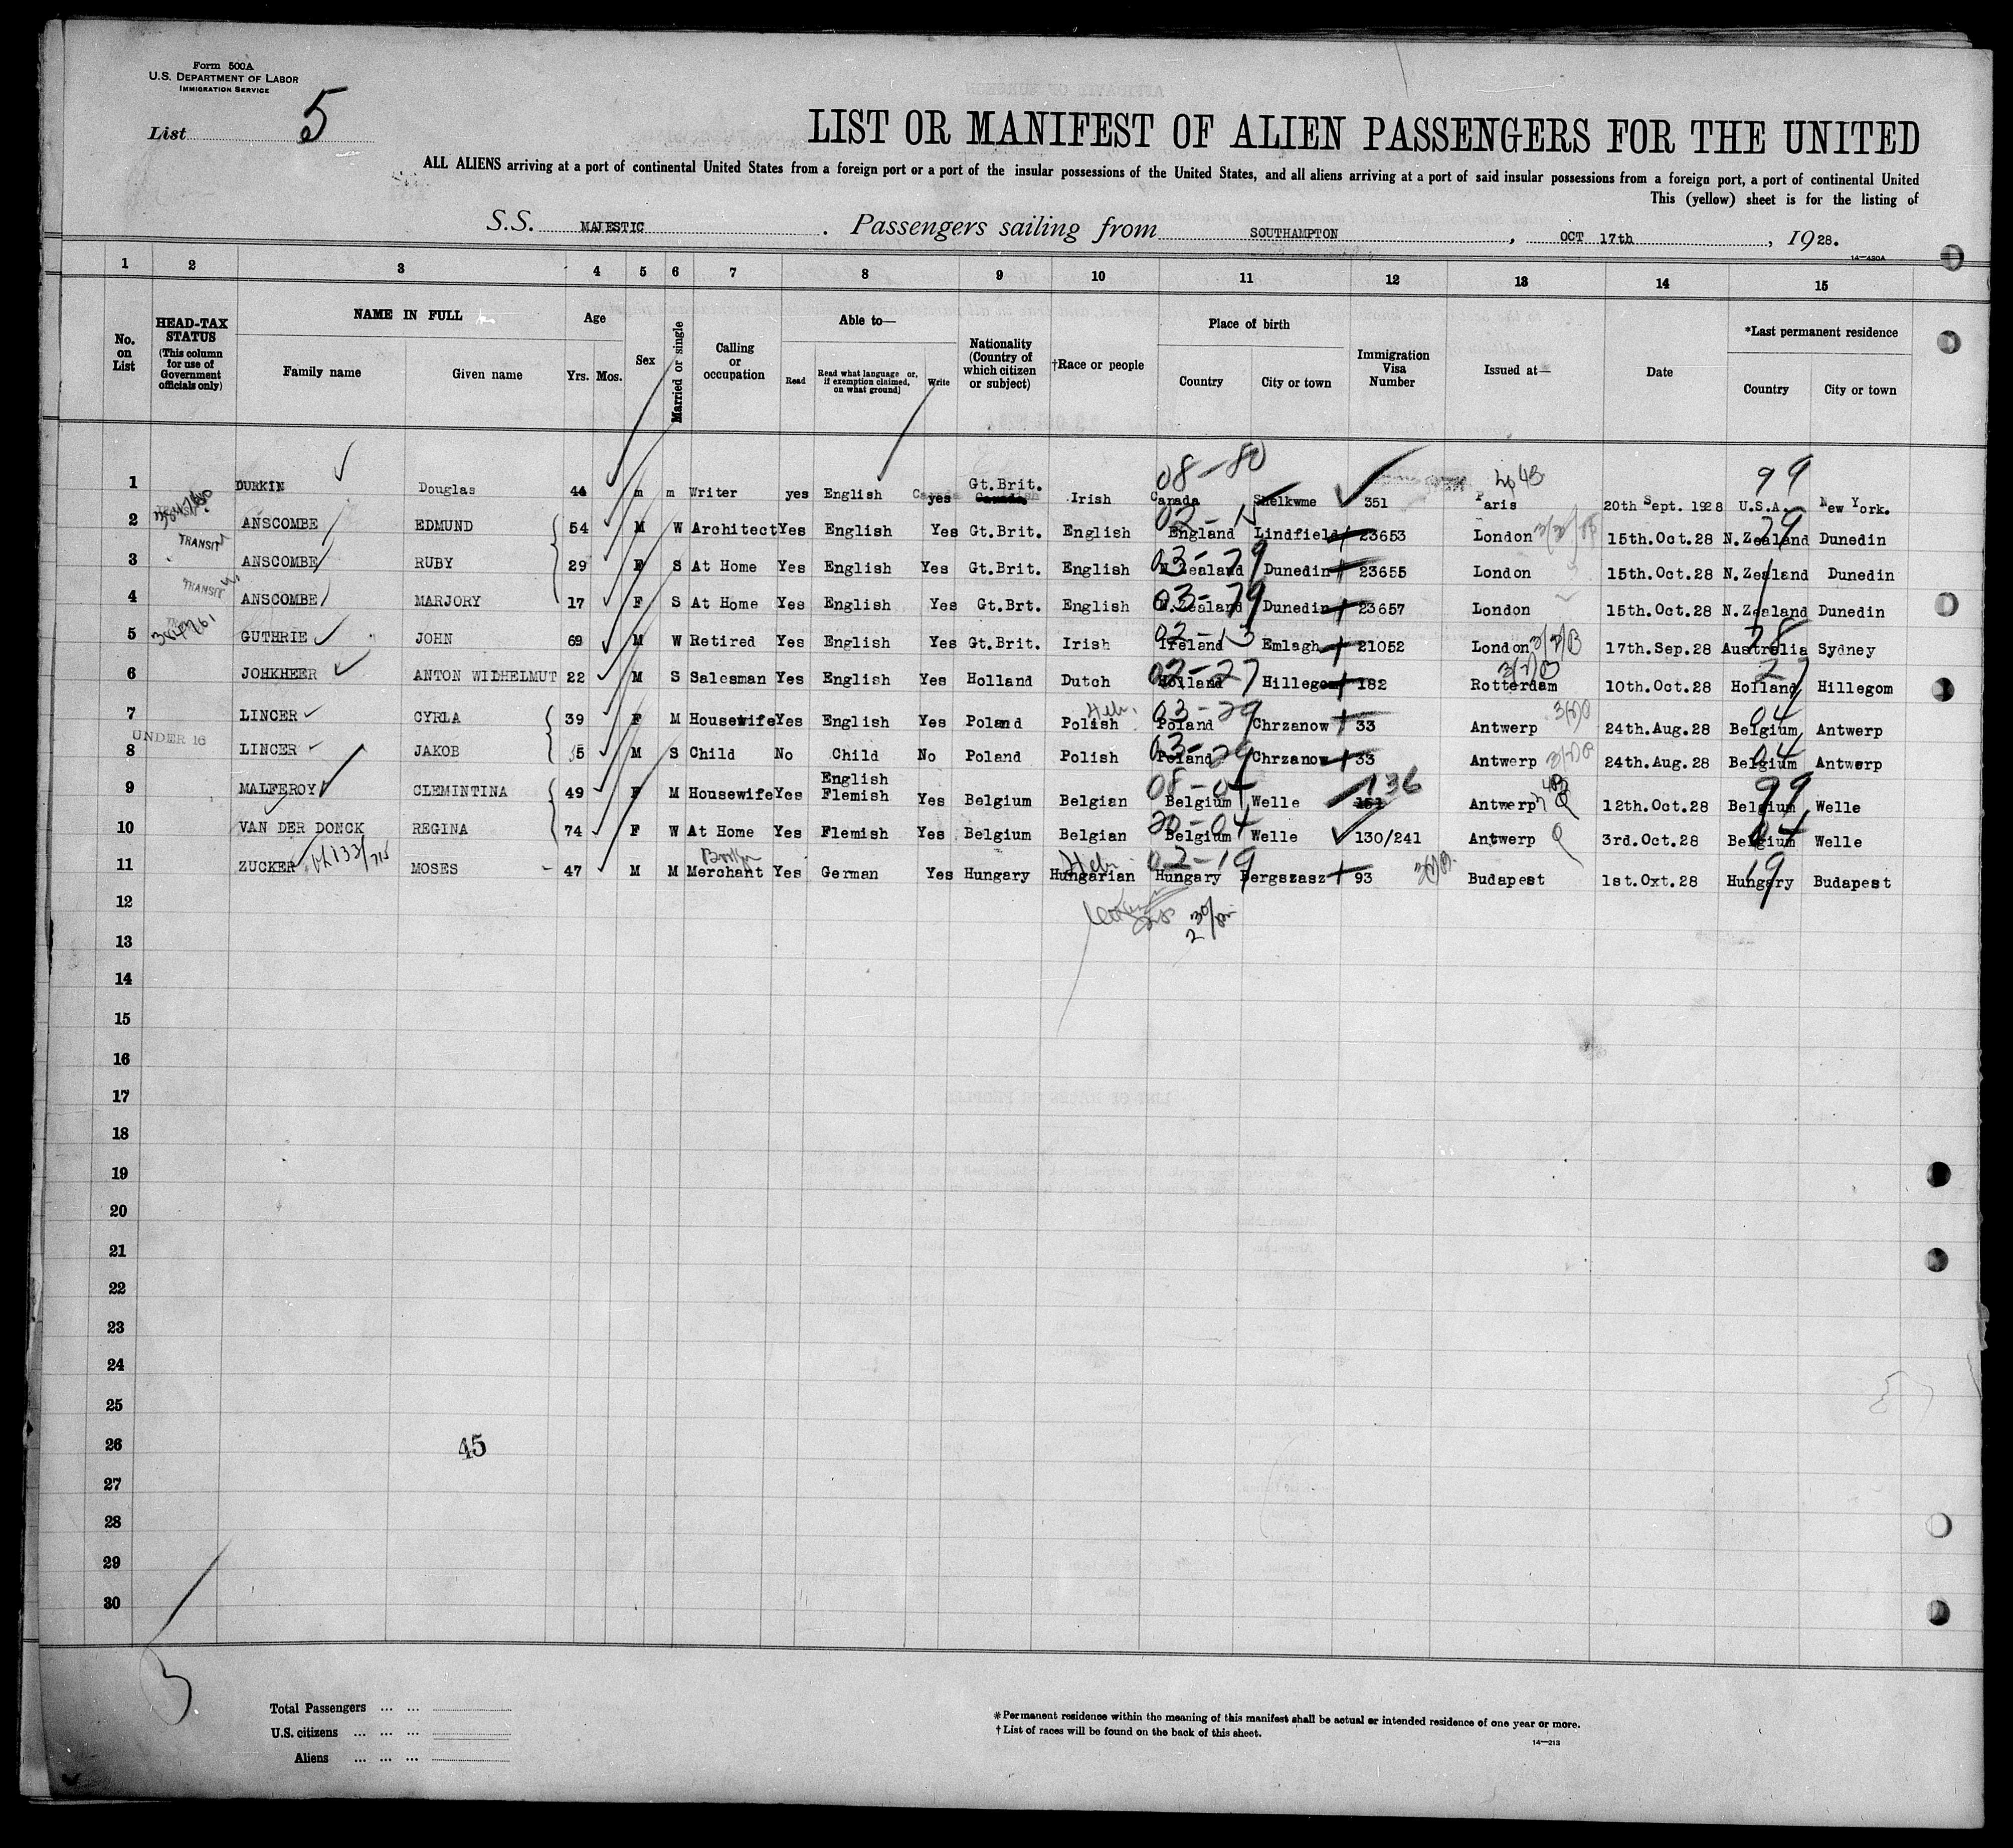 Form 500A
U.S. DEPARTMENT OF LABOR
IMMIGRATION SERVICE
List 5
LIST OR MANIFEST OF ALIEN PASSENGERS FOR THE UNITED
ALL ALIENS arriving at a port of continental United States from a foreign port or a port of the insular possessions of the United States, and all aliens arriving at a port of said insular possessions from a foreign port, a port of continental United
This (yellow) sheet is for the listing of
S.S. MAJESTIC. Passengers sailing from SOUTHAMPTON, OCT 17th, 1928.
14—450A
1 2 3 4 5 6 7 8 9 10 11 12 13 14 15
No. on List
HEAD-TAX STATUS (This column for use of Government officials only)
NAME IN FULL
Family name Given name
Age
Yrs. Mos.
Sex
Married or single
Calling or occupation
Able to—
Read Read what language or, if exemption claimed, on what ground] Write
Nationality (Country of which citizen or subject)
†Race or people
Place of birth
Country City or town
Immigration Visa Number
Issued at—
Date
*Last permanent residence
Country City or town
08-80 99
1 DURKIN Douglas 44 m m Writer yes English yes Gt.Brit. Irish Canada Shelkwme 351 Paris 20th Sept. 1928 U.S.A. New York.
2 ANSCOMBE EDMUND 54 M W Architect Yes English Yes Gt.Brit. English England Lindfield 23653 London 15th.Oct.28 N.Zealand Dunedin
TRANSIT
3 ANSCOMBE RUBY 29 F S At Home Yes English Yes Gt.Brit. English N.Zealand Dunedin 23655 London 15th.Oct.28 N.Zealand Dunedin
TRANSIT
4 ANSCOMBE MARJORY 17 F S At Home Yes English Yes Gt.Brt. English N.Zealand Dunedin 23657 London 15th.Oct.28 N.Zealand Dunedin
5 GUTHRIE JOHN 69 M W Retired Yes English Yes Gt.Brit. Irish Ireland Emlagh 21052 London 17th.Sep.28 Australia Sydney
6 JOHKHEER ANTON WIDHELMUT 22 M S Salesman Yes English Yes Holland Dutch Holland Hillegom 182 Rotterdam 10th.Oct.28 Holland Hillegom
7 LINCER CYRLA 39 F M Housewife Yes English Yes Poland Polish Heb. Poland Chrzanow 33 Antwerp 24th.Aug.28 Belgium Antwerp
UNDER 16
8 LINCER JAKOB 5 M S Child No Child No Poland Polish Poland Chrzanow 33 Antwerp 24th.Aug.28 Belgium Antwerp
9 MALFEROY CLEMINTINA 49 F M Housewife Yes English Flemish Yes Belgium Belgian Belgium Welle 136 Antwerp 12th.Oct.28 Belgium Welle
10 VAN DER DONCK REGINA 74 F W At Home Yes Flemish Yes Belgium Belgian Belgium Welle 130/241 Antwerp 3rd.Oct.28 Belgium Welle
11 ZUCKER MOSES 47 M M Merchant Yes German Yes Hungary Hungarian Heb. Hungary Bergszasz 93 Budapest 1st.Oxt.28 Hungary Budapest
12
13
14
15
16
17
18
19
20
21
22
23
24
25
26 45
27
28
29
30
Total Passengers ... ...
U.S. citizens ... ... ...
Aliens ... ... ...
*Permanent residence within the meaning of this manifest shall be actual or intended residence of one year or more.
†List of races will be found on the back of this sheet.
14—213